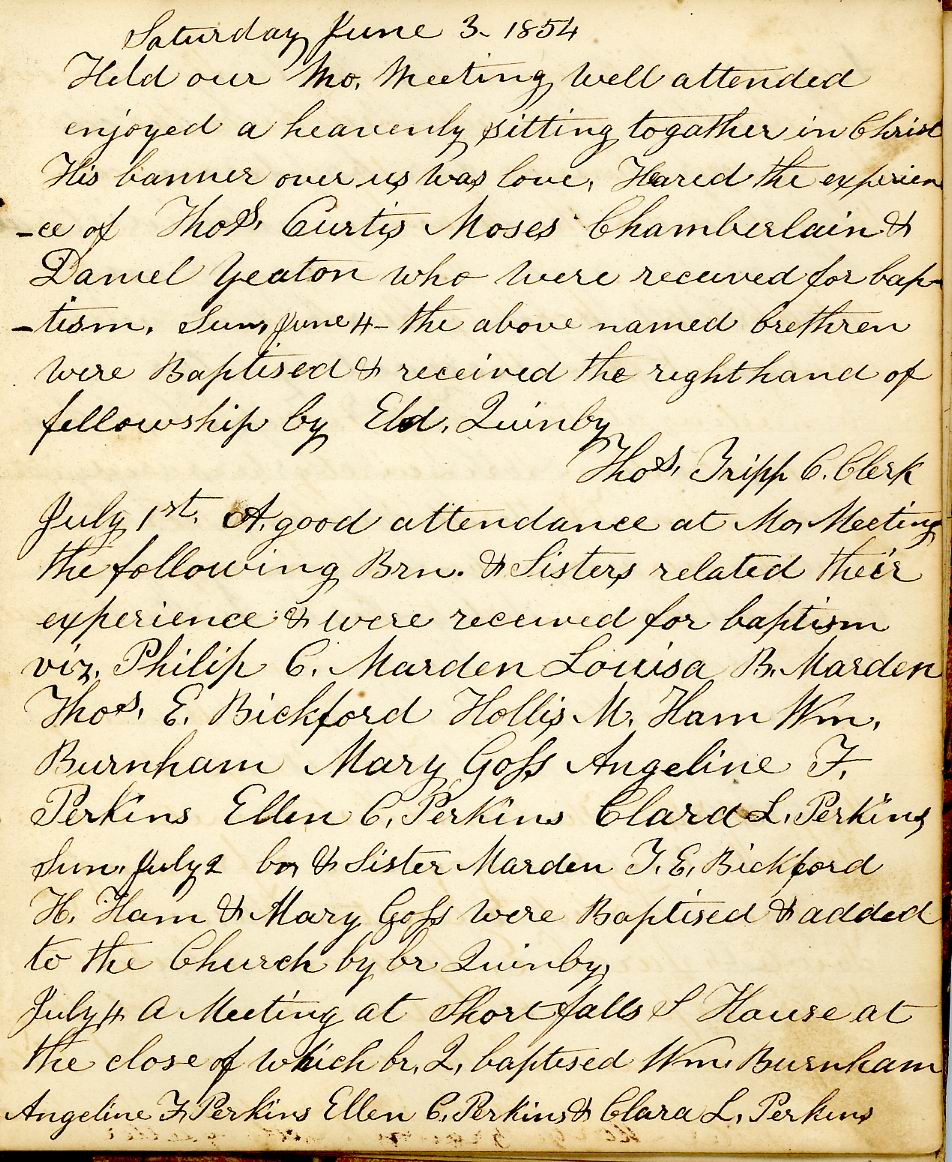 Saturday June 3. 1854
Held our Mo. Meeting well attended
enjoyed a heavenly sitting together in Christ
His banner over us was love. Heared the experien
-ce of Thos. Curtis Moses Chamberlain &
Daniel Yeaton who were received for bap-
-tism. Sun, June 4- the above named brethren
were Baptised & received the right hand of
fellowship by Eld. Quinby
Thos. Tripp C. Clerk
July 1st. A good attendance at Mo, Meeting
the following Brn. & Sisters related their
experience & were received for baptism
viz. Philip C. Marden Louisa B. Marden
Thos. E. Bickford Hollis M. Ham Wm.
Burnham Mary Goss Angeline F.
Perkins Ellen C. Perkins Clara L. Perkins
Sun. July 2 br & Sister Marden T. E. Bickford
H. Ham & Mary Goss were Baptised & added
to the Church by br Quinby,
July 4 A Meeting at Short falls S House at
the close of which br. Q, baptised Wm. Burnham
Angeline F. Perkins Ellen C. Perkins & Clara L. Perkins